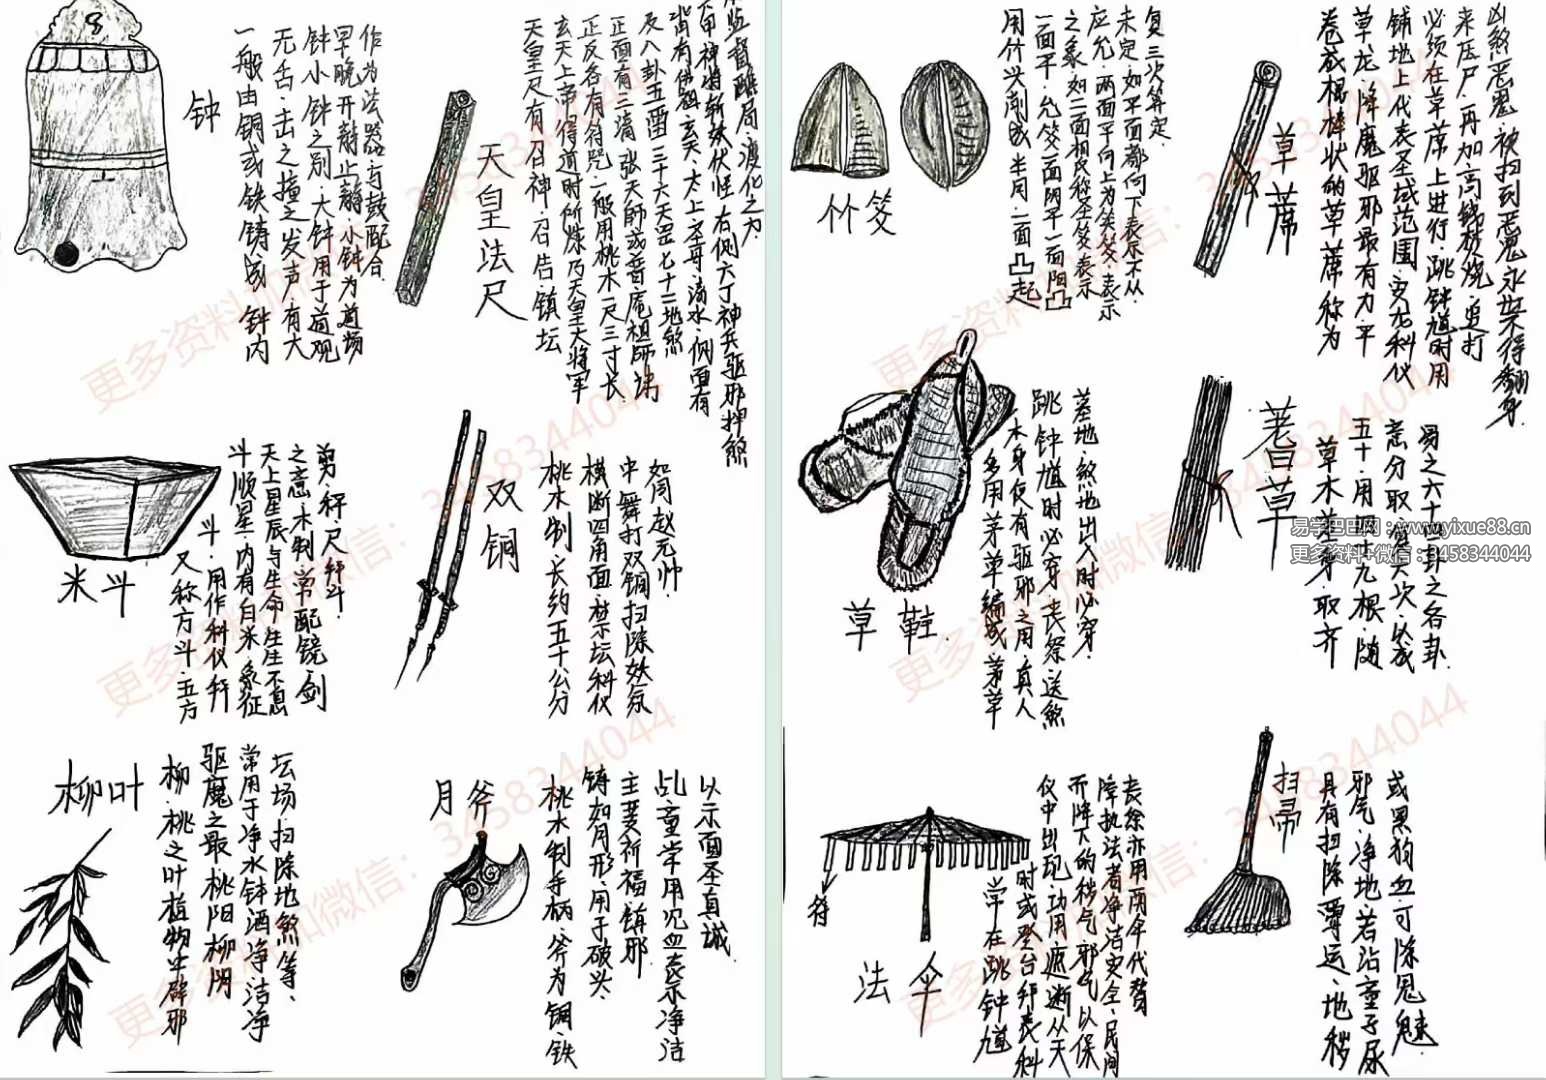 钟
一般由铜或铁铸成·钟内
无舌·击之撞之发声·有大
钟小钟之别·大钟用于道观
早晚开静止静·小钟为道场
作为法器·与鼓配合
天皇法尺
天皇尺有召神·召告·镇坛
玄天上帝得道时所炼乃天皇大将军
正反各有符咒·一般用桃木一尺三寸长
正面有三清·张天師或普庵祖師
及八卦五雷三十六天罡七十二地煞
背有佛祖·玄天·太上··侧面有
甲神将斩妖伏怪·右侧六丁神兵驱邪押煞
监督醮局·渡化之力
米斗
又称方斗·五方
斗·用作科仪·秤
斗顺星·内有白米·象征
天上星辰与生命生生不息
之意·木制·常配镜·剑
剪·秤·尺·秤斗
双锏
桃木制·长约五十公分
横断四角面·禁坛科仪
中舞打双锏扫除妖氛
如同赵元帅
柳叶
柳·桃之叶植物生辟邪
驱魔之最·桃阳柳阴
常用于净水钟酒净·洁净
坛场·扫除地煞等
月斧
桃木制手柄·斧为铜·铁
铸如月形·用于破头·
主要祈福镇邪
此童常用见血表示净洁
以示面圣真诚
竹筊
用竹头削成半月·一面凸起
一面平·允筊一面阴平一面阳凸
之象·如二面相反称圣筊·表示
应允·两面平向上为笑筊·表示
未定·如平面都向下表示不从·
复三次算定·
草席
卷成棍棒状的草席称为
草龙·降魔驱邪最有力·平
铺地上代表圣域范围·安龙科仪
必须在草席上进行·跳钟馗时用
来压尸·再加高钱焚烧·追打
凶煞恶鬼·被扫到恶鬼永世不得翻身
草鞋
多用茅草编成·茅草
本身便有驱邪之用·真人
跳钟馗时必穿·丧祭·送煞
墓地·煞地出入时必穿·
蓍草
草木·蓍身取齐
五十·用四九根·随
意分取·演六次·必成
易之六十四卦之各卦
法伞
符
常在跳钟馗
时或登台拜表科
仪中出现·功用遮断从天
而降下的秽气·邪气·以保
障执法者净洁安全·民间
丧徐亦用两年代替
扫帚
具有扫除霉运·地秽
邪气·净地若沾童子尿
或黑狗血可除鬼魅
更多资料加微信：3458344044
更多资料加微信：3458344044
易学巴巴网：www.yixue88.cn
更多资料+微信：3458344044